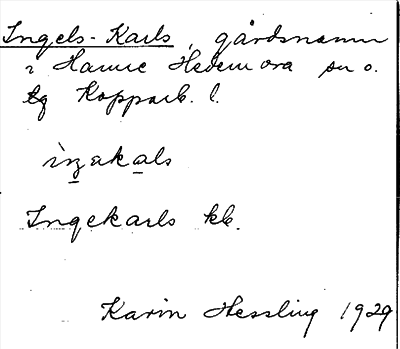 Ingels-Karls, gårdsnamn
i Hamre Hedemora sn o.
tg Kopparb. l.
ìŋakals
Ingekarls kb.
Karin Hessling 1929